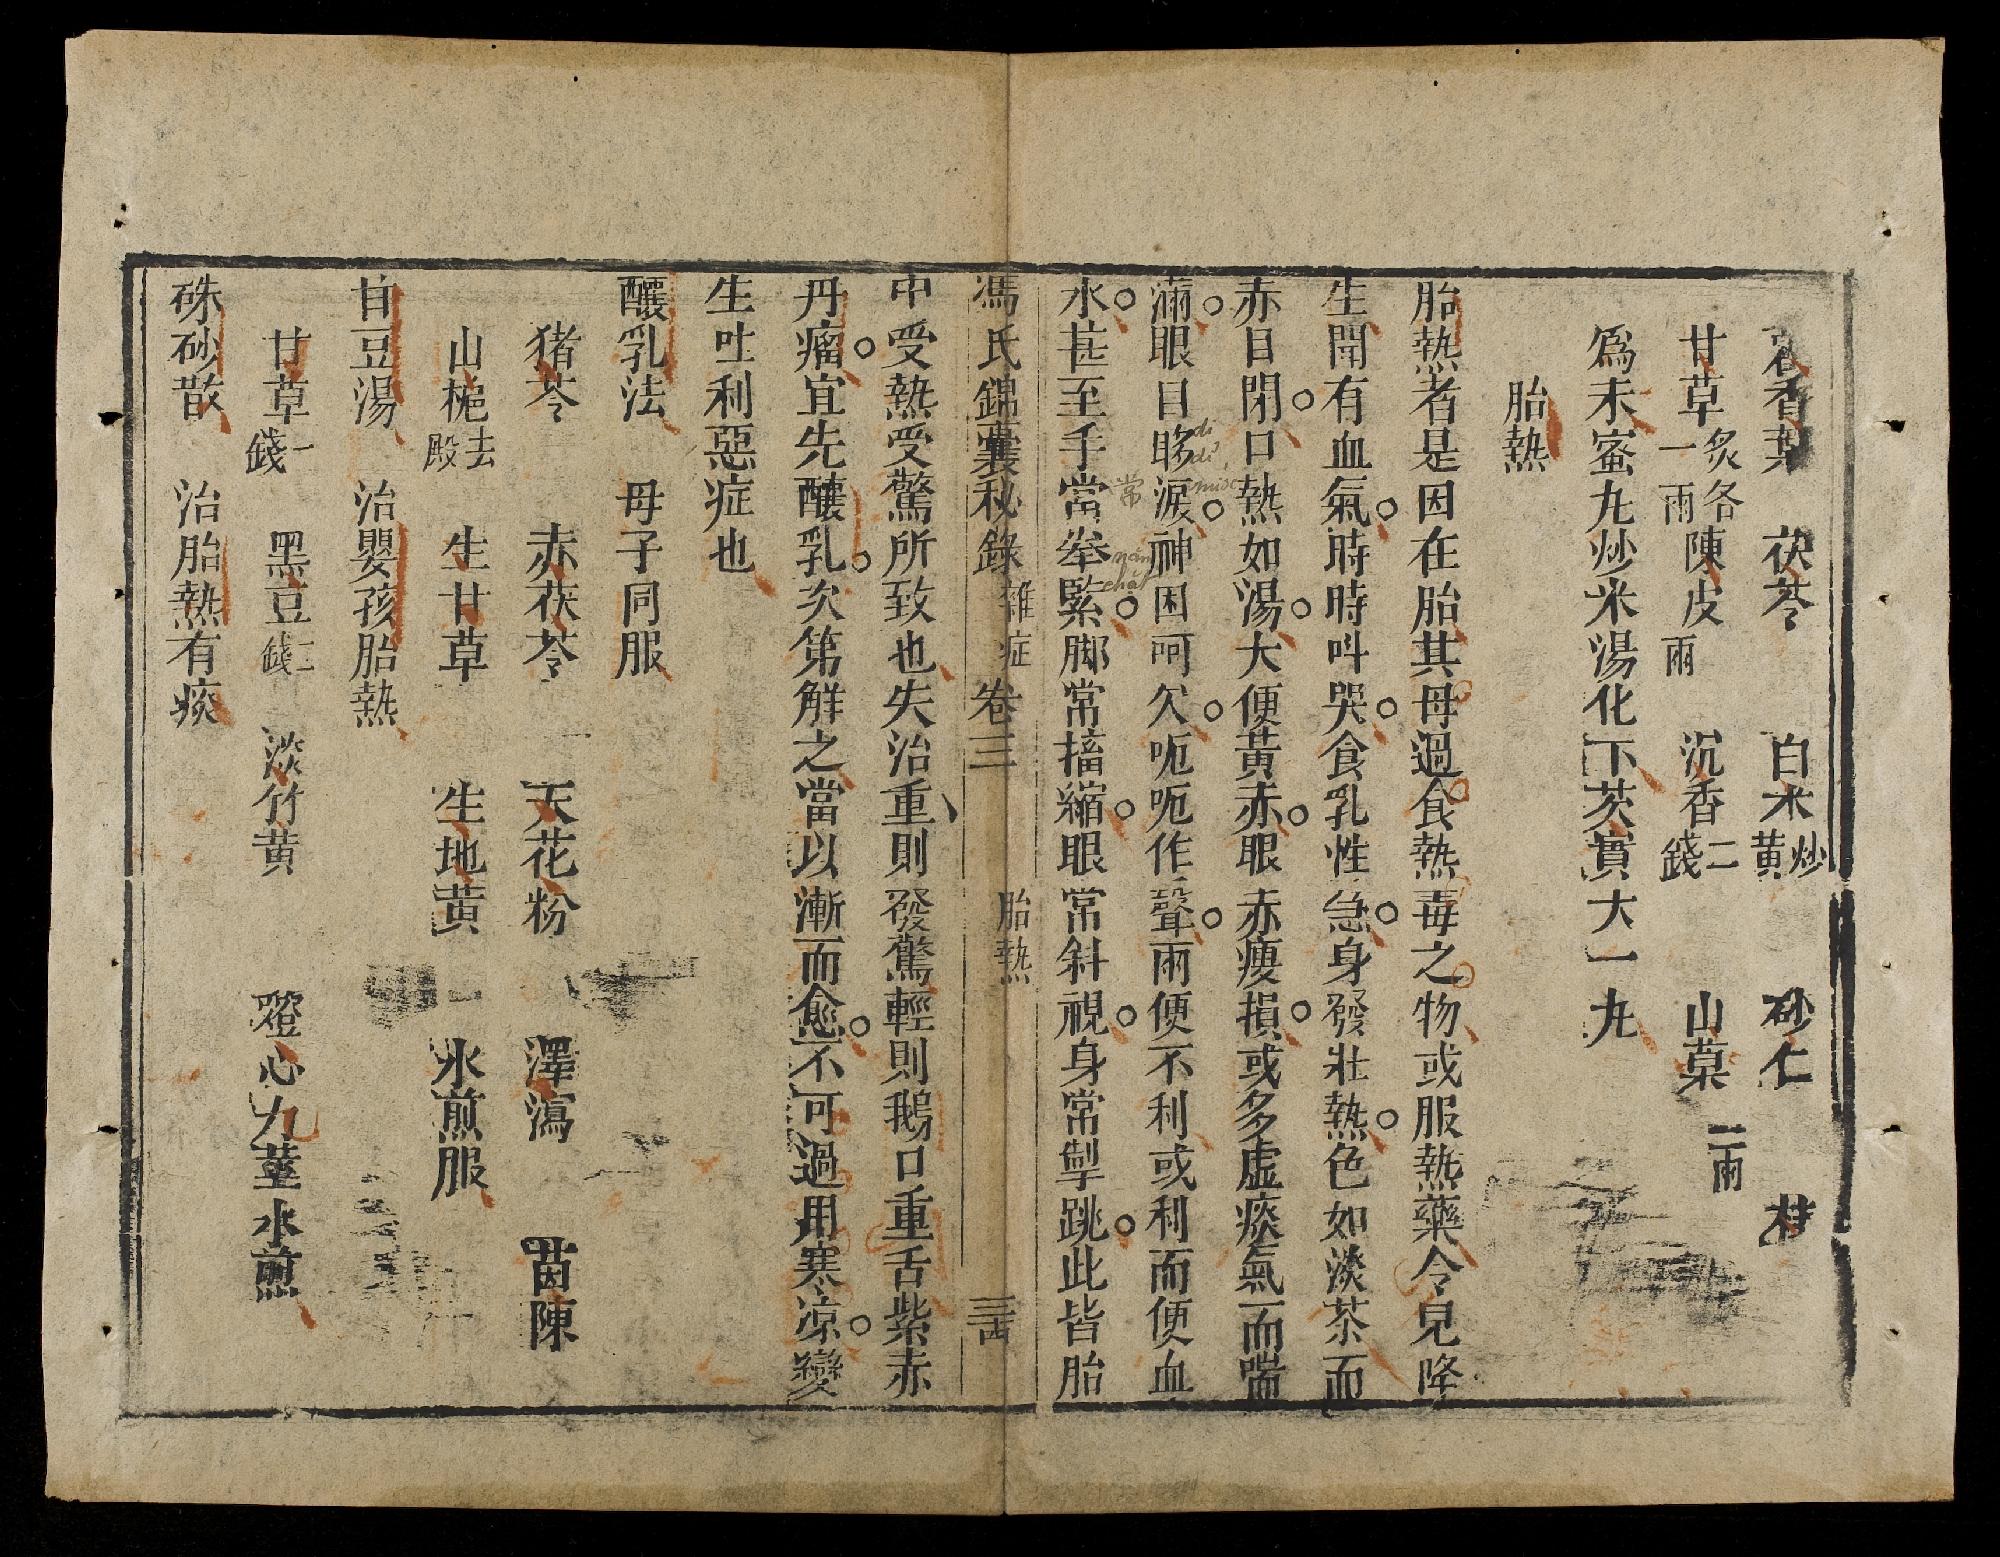 香葉　茯苓　白朮炒黃　砂仁　桂
甘草炙各一兩　陳皮兩　沉香二錢　山藥二兩
爲末蜜丸炒米湯化下芡實大一丸
胎熱
胎熱者是因在胎其母過食熱毒之物或服熱藥令兒降
生聞有血氣時時呌哭食乳性急身發壯熱色如淡茶而
赤目閉口熱如湯大便黃赤眼赤瘦損或多虛痰氣而喘
滿眼目眵淚神困呵欠呃呃作聲兩便不利或利而便血
水甚至手常拳緊脚常搐縮眼常斜視身常掣跳此皆胎
常
nắm chặt
馮氏錦囊秘錄　雜症卷三　胎熱　三古
中受熱受驚所致也失治重則發驚輕則鵝口重舌紫赤
丹瘤宜先釀乳次第解之當以漸而愈不可過用寒凉變
生吐利惡症也
釀乳法　母子同服
猪苓　赤茯苓　天花粉　澤瀉　茵陳
山梔去殿　生甘草　生地黃　水煎服
甘豆湯　治嬰孩胎熱
甘草一錢　黑豆二錢　淡竹黃　燈心九莖水煎
硃砂散　治胎熱有痰